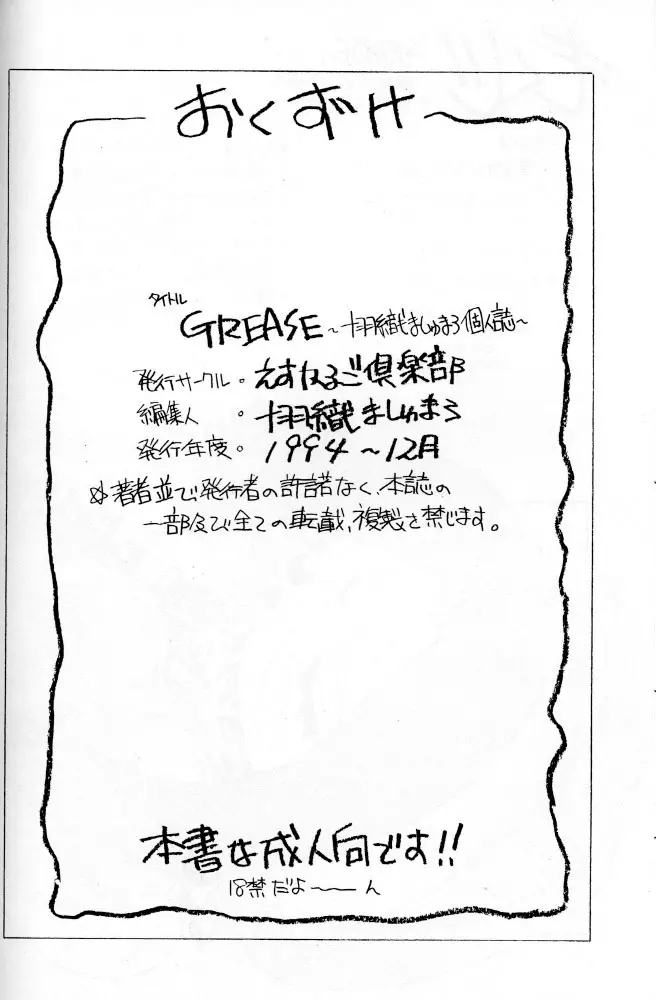 おくずけ
タイトル
GREASE ～十羽織ましゅまろ個人誌～
発行サークル・えすねるご倶楽部
編集人・十羽織ましゅまろ
発行年度・1994～12月
※著者並びに発行者の許諾なく、本誌の
一部及び全ての転載、複製を禁じます。
本書は成人向です!!
18禁だよ～ん